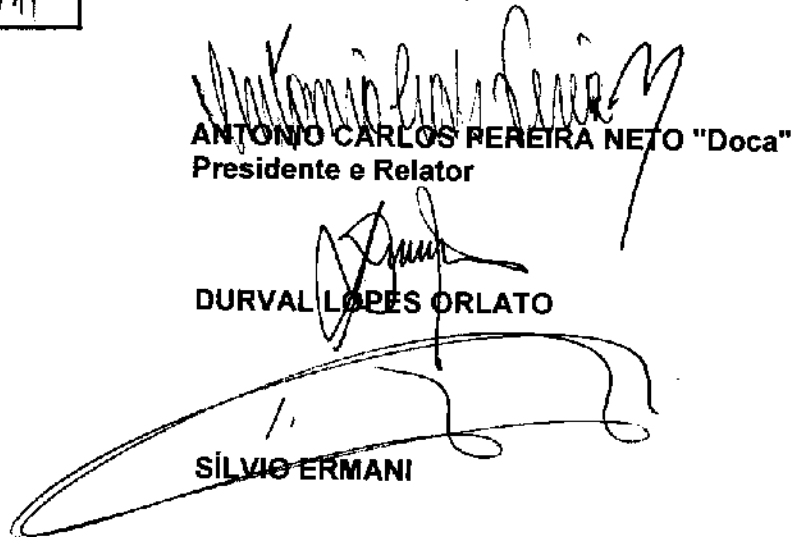 ANTONIO CARLOS PEREIRA NETO "Doca"
Presidente e Relator
DURVAL LOPES ORLATO
SÍLVIO ERMANI